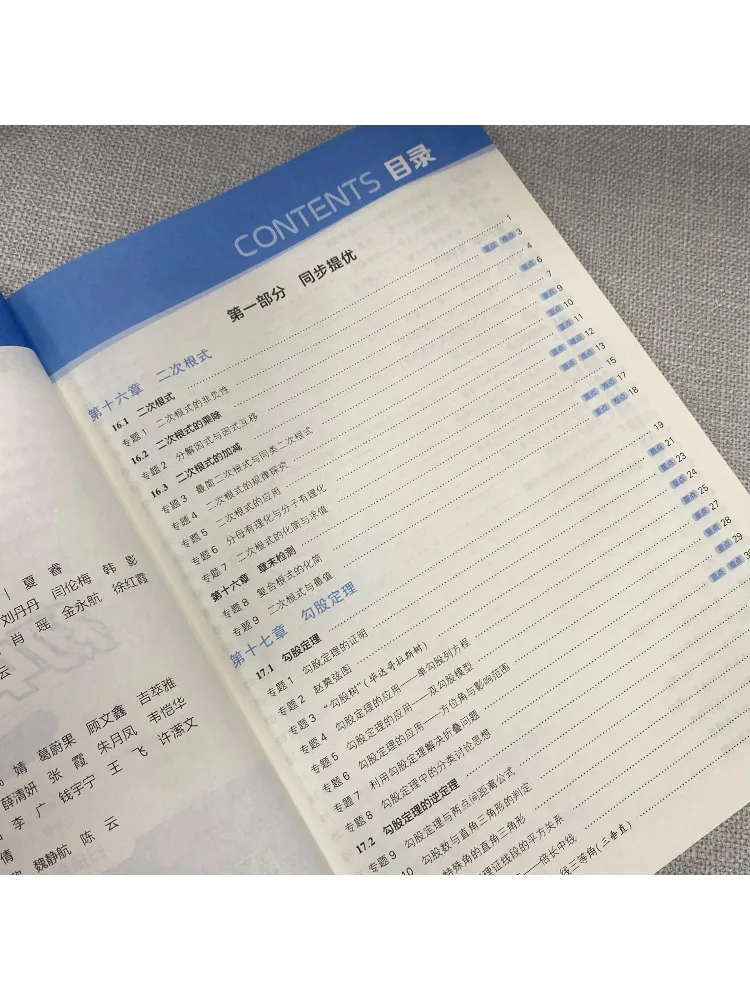 | 夏 睿
刘丹丹 闫伦梅 韩 影
肖 瑶 金永航 徐红霞
云
靖 葛蔚果 顾文鑫 吉萃雅
薛清妍 张 霞 朱月凤 韦恺华
李 广 钱宇宁 王 飞 许潇文
倩
魏静航 陈 云
CONTENTS 目录
第一部分 同步提优
第十六章 二次根式
16.1 二次根式 1
专题1 二次根式的非负性 重点 难点 3
16.2 二次根式的乘除 4
专题2 分解因式与因式互移 重点 6
16.3 二次根式的加减 7
专题3 最简二次根式与同类二次根式 重点 9
专题4 二次根式的规律探究 重点 10
专题5 二次根式的应用 重点 11
专题6 分母有理化与分子有理化 重点 难点 12
专题7 二次根式的化简与求值 重点 难点 13
第十六章 章末检测 15
专题8 复合根式的化简 重点 难点 17
专题9 二次根式与最值 重点 难点 18
第十七章 勾股定理
17.1 勾股定理 19
专题1 勾股定理的证明 重点 21
专题2 赵爽弦图 重点 23
专题3 “勾股树”(毕达哥拉斯树) 重点 24
专题4 勾股定理的应用——单勾股列方程 25
专题5 勾股定理的应用——双勾股模型 重点 27
专题6 勾股定理的应用——方位角与影响范围 28
专题7 利用勾股定理解决折叠问题 重点 29
专题8 勾股定理中的分类讨论思想 重点 难点 30
17.2 勾股定理的逆定理
专题9 勾股定理与两点间距离公式
10 勾股数与直角三角形的判定
特殊角的直角三角形
理证线段的平方关系
倍长中线
线三等角(三垂直)